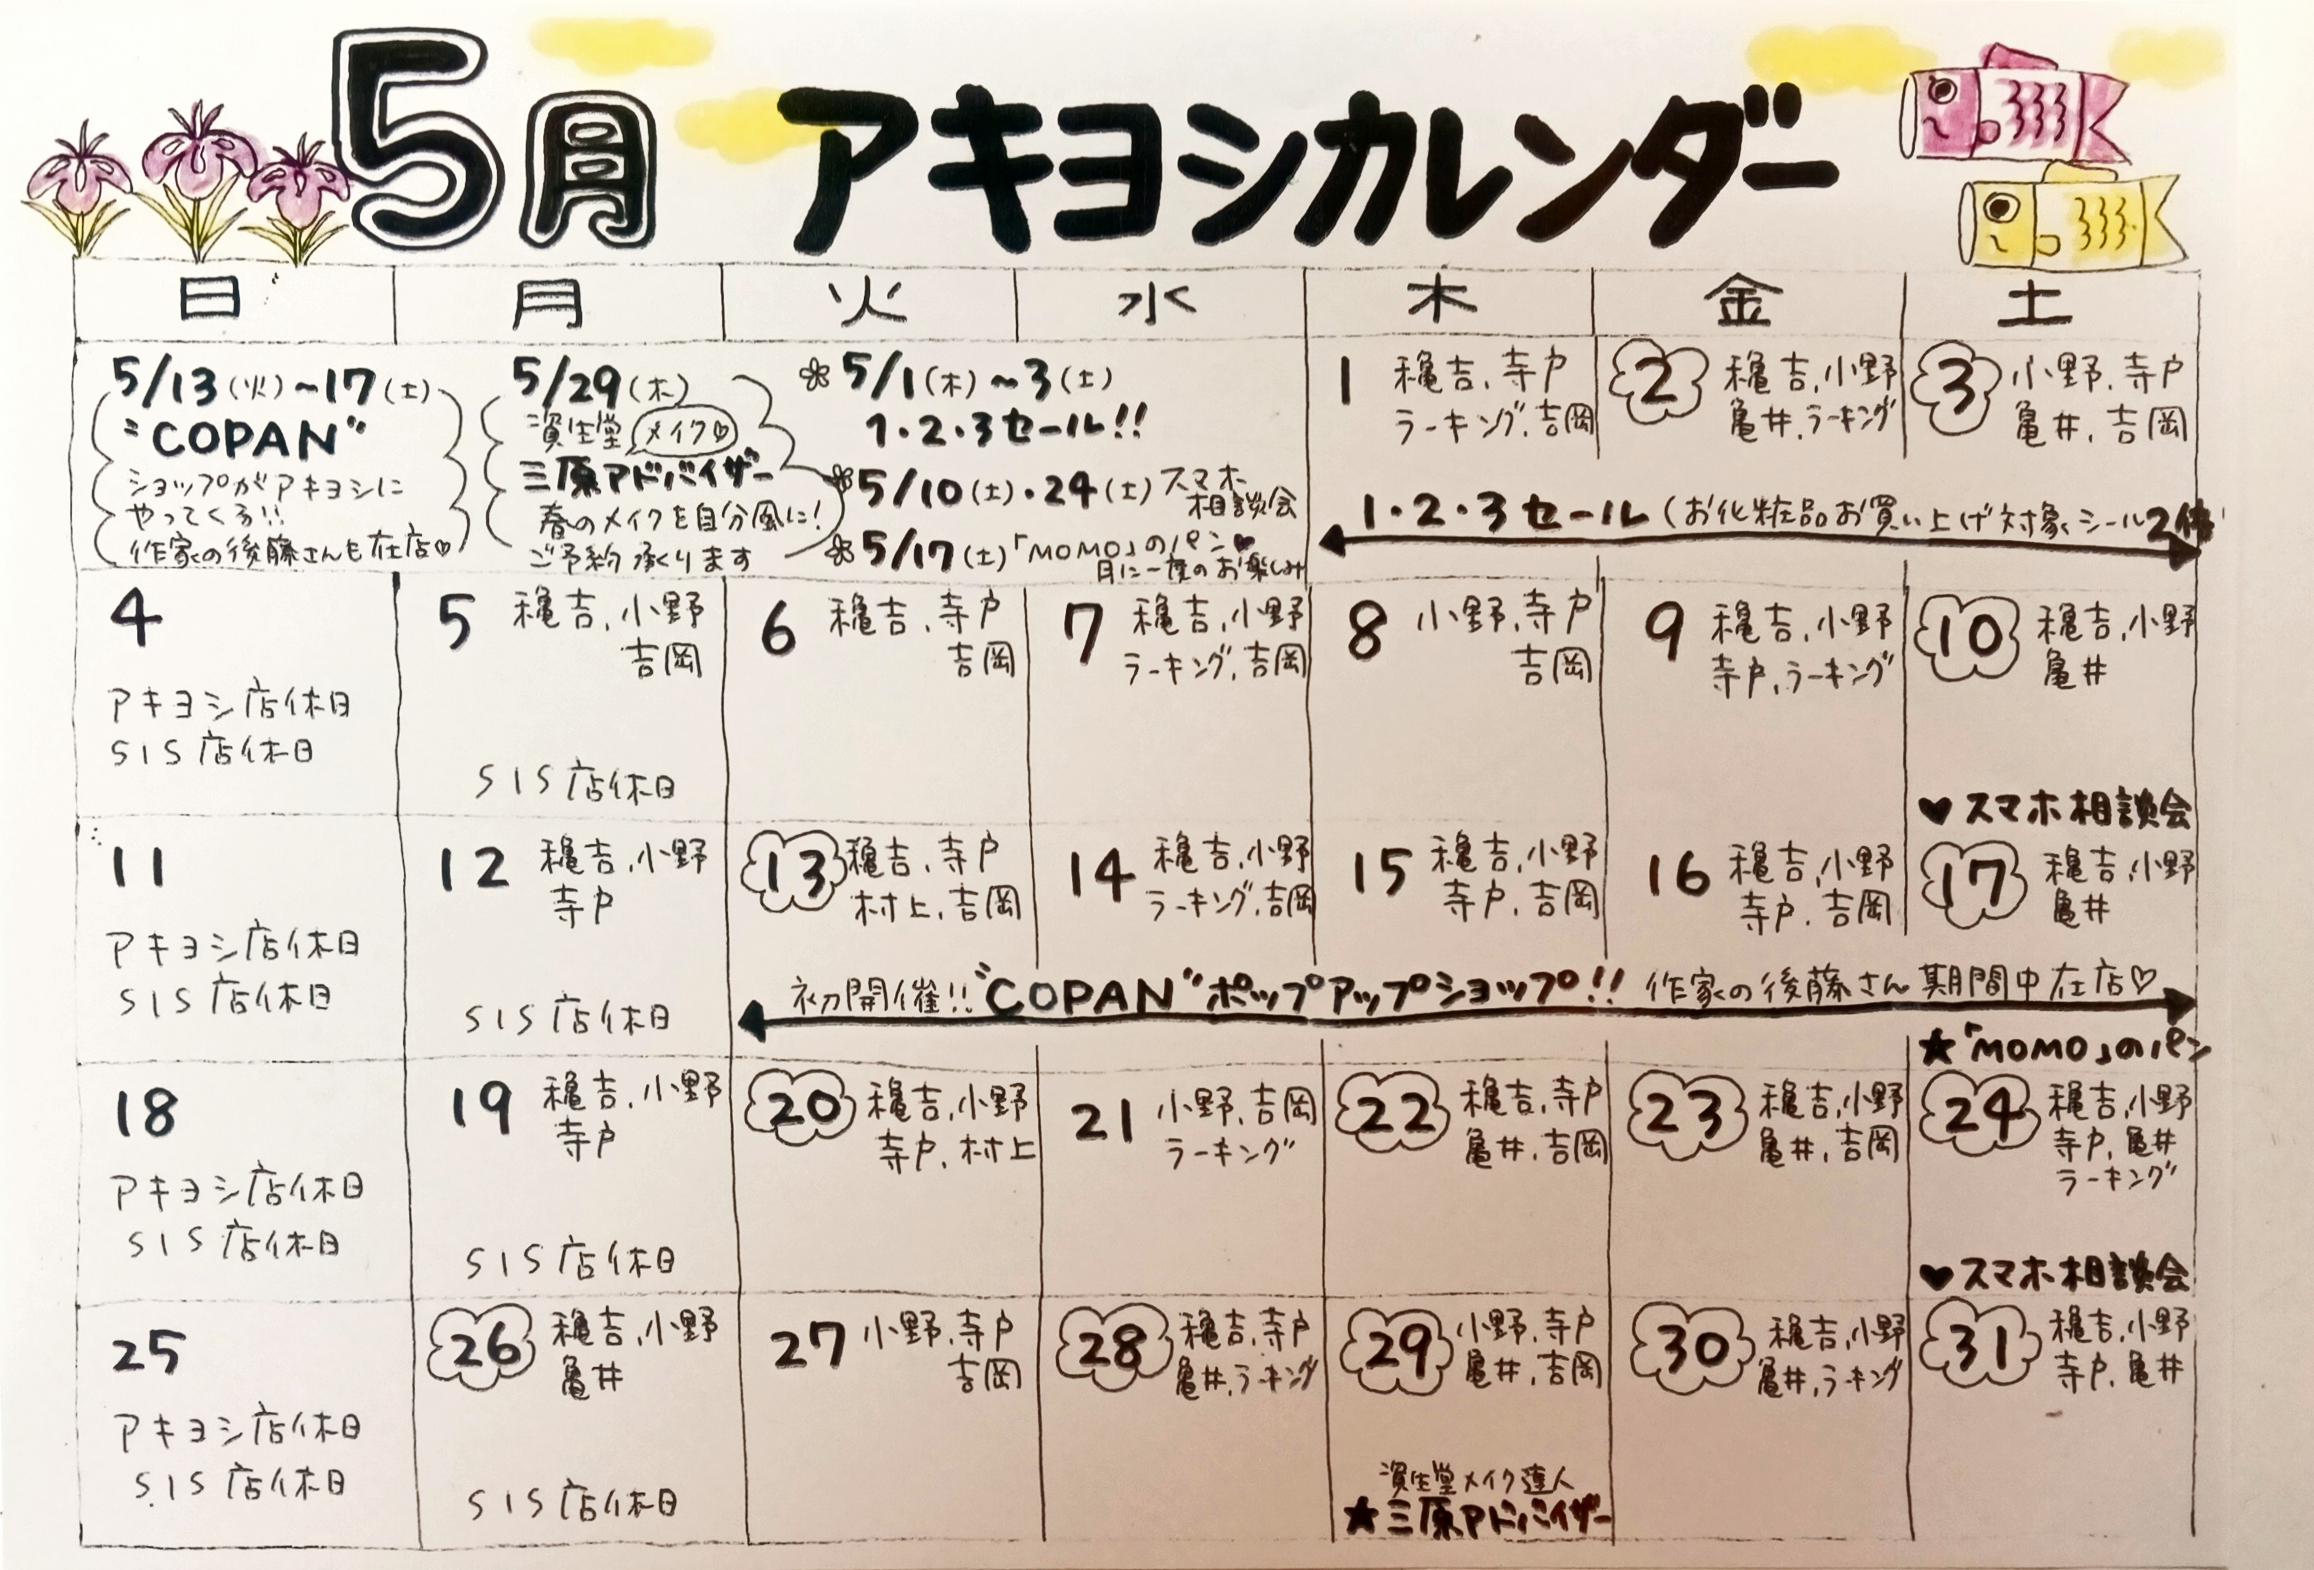 5月 アキヨシカレンダー
日 月 火 水 木 金 土
5/13(火)~17(土)
"COPAN"
ショップがアキヨシに
やってくる!!
作家の後藤さんも在店♡
5/29(木)
資生堂 メイク♡
三原アドバイザー
春のメイクを自分風に!
ご予約承ります
5/1(木)~3(土)
1・2・3セール!!
5/10(土)・24(土)スマホ
相談会
5/17(土)「MOMO」のパン♥
月に一度のお楽しみ
1 穐吉、寺戸
ラーキング、吉岡
2 穐吉、小野
亀井、ラーキング
3 小野、寺戸
亀井、吉岡
1・2・3セール(お化粧品お買い上げ対象シール2倍
4
アキヨシ店休日
SIS店休日
5 穐吉、小野
吉岡
SIS店休日
6 穐吉、寺戸
吉岡
7 穐吉、小野
ラーキング、吉岡
8 小野、寺戸
吉岡
9 穐吉、小野
寺戸、ラーキング
10 穐吉、小野
亀井
♥スマホ相談会
11
アキヨシ店休日
SIS店休日
12 穐吉、小野
寺戸
SIS店休日
13 穐吉、寺戸
村上、吉岡
14 穐吉、小野
ラーキング、吉岡
15 穐吉、小野
寺戸、吉岡
16 穐吉、小野
寺戸、吉岡
17 穐吉、小野
亀井
初開催!!"COPAN"ポップアップショップ!! 作家の後藤さん期間中在店♡
★「MOMO」のパン
18
アキヨシ店休日
SIS店休日
19 穐吉、小野
寺戸
SIS店休日
20 穐吉、小野
寺戸、村上
21 小野、吉岡
ラーキング
22 穐吉、寺戸
亀井、吉岡
23 穐吉、小野
亀井、吉岡
24 穐吉、小野
寺戸、亀井
ラーキング
♥スマホ相談会
25
アキヨシ店休日
SIS店休日
26 穐吉、小野
亀井
SIS店休日
27 小野、寺戸
吉岡
28 穐吉、寺戸
亀井、ラーキング
29 小野、寺戸
亀井、吉岡
資生堂メイク達人
★三原アドバイザー
30 穐吉、小野
亀井、ラーキング
31 穐吉、小野
寺戸、亀井